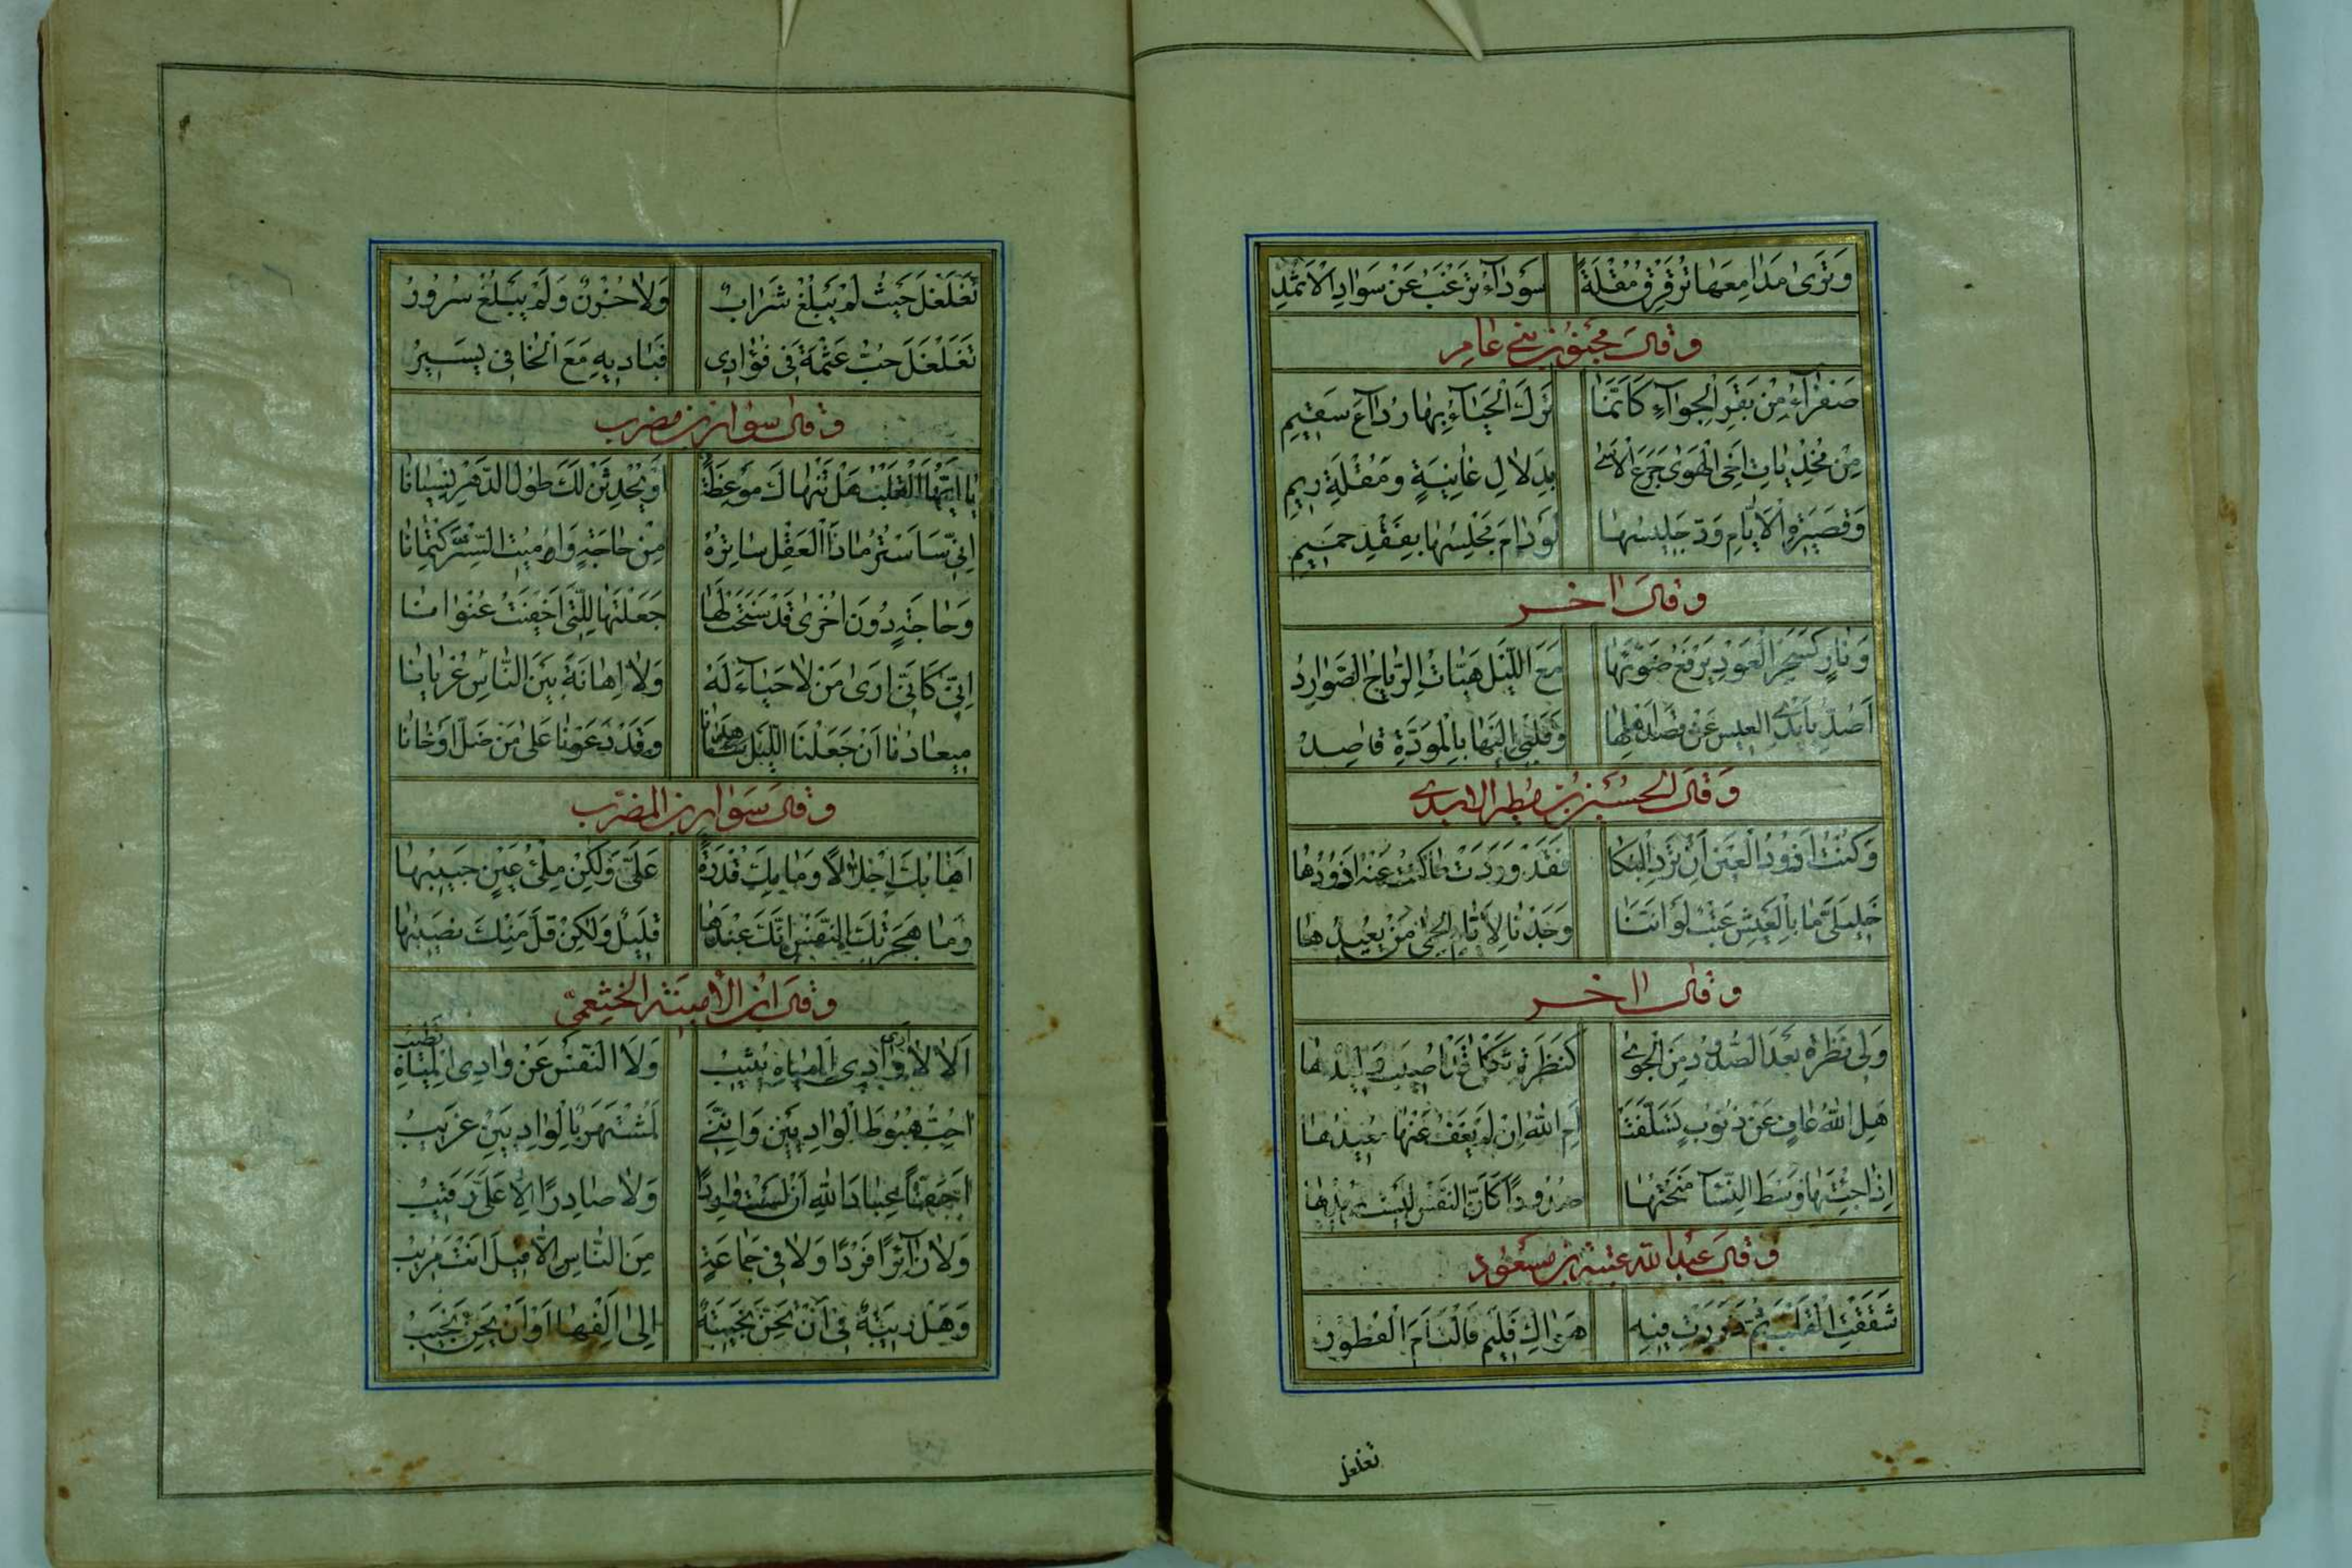 وَتَرٰى مَدٰامِعَهٰا تُرَقْرِقُ مُقْلَةً سَوْدٰآءَ تَرْغَبُ عَنْ سَوٰادِ الْاَثْمُدِ
وقال مجنون بنی عامر
صَفْرٰآءُ مِنْ بَقَرِ الْجِوٰآءِ كَاَنَّمٰا تَرَكَ الْحَيٰآءُ بِهٰا رُدٰاعَ سَقيٖمِ
مِنْ مُحْذِيٰاتِ اَخِى الْهَوٰى جَرَعَ الْاَسٰى بِدَلٰالِ غٰانِيَةٍ وَمُقْلَةِ رٖيمِ
وَقَصيٖرَةِ الْاَيّٰامِ وَدَّ جَليٖسُهٰا لَوْ دٰامَ مَجْلِسُهٰا بِفَقْدِ حَميٖمِ
وقال اخر
وَنٰارٍ كَسَحْرِ الْعَوْدِ يَرْفَعُ ضَوْئَهٰا مَعَ اللَّيْلِ هَبّٰاتُ الرِّيٰاحِ الصَّوٰارِدُ
اَصُدُّ بِاَيْدِى الْعيٖسِ عَنْ قَصْدِ اَهْلِهٰا وَقَلْبٖى اِلَيْهٰا بِالْمَوَدَّةِ قٰاصِدُ
وَقال الحسین بن مطیر الاسدی
وَكُنْتُ اَذُودُ الْعَيْنَ اَنْ تَرِدَ الْبُكٰا فَقَدْ وَرَدَتْ مٰا كُنْتُ عَنْهُ اَذُودُهٰا
خَليٖلَىَّ مٰا بِالْعَيْشِ عَتْبٌ لَوْ اَنَّنٰا وَجَدْنٰا لِاَيّٰامِ الْحِمٰى مَنْ يُعيٖدُهٰا
وقال اخر
وَلٖى نَظْرَةٌ بَعْدَ الصُّدُودِ مِنَ الْجَوٰى كَنَظْرَةِ ثَكْلٰى قَدْ اُصيٖبَ وَليٖدُهٰا
هَلِ اللّٰهُ عٰافٍ عَنْ ذُنُوبٍ تَسَلَّفَتْ اَمِ اللّٰهُ اِنْ لَمْ يَعْفُ عَنْهٰا يُعيٖدُهٰا
اِذٰا جِئْتَهٰا وَسْطَ النِّسٰآءِ مَنَحْتُهٰا صُدُودًا كَاَنَّ النَّفْسَ لَيْسَتْ تُريٖدُهٰا
وقال عبد الله عتبه بن مسعود
شَقَقْتِ الْقَلْبَ ثُمَّ ذَرَرْتِ فيٖهِ هَوٰاكِ فَليٖمَ فَالْتَاَمَ الْفُطُورُ
تغلغل
تَغَلْغَلَ حَيْثُ لَمْ يَبْلُغْ شَرٰابٌ وَلٰا حُزْنٌ وَلَمْ يَبْلُغْ سُرُورُ
تَغَلْغَلَ حُبُّ عَثْمَةَ فٖى فُؤٰادٖى فَبٰاديٖهِ مَعَ الْخٰافٖى يَسيٖرُ
وقال سوار بن مضرب
يٰا اَيُّهَا الْقَلْبُ هَلْ تَنْهٰاكَ مَوْعِظَةٌ اَوْ يُحْدِثَنْ لَكَ طُولُ الدَّهْرِ نِسْيٰانٰا
اِنّٖى سَاَسْتُرُ مٰا ذَا الْعَقْلِ سٰاتِرُهُ مِنْ حٰاجَةٍ وَاُميٖتُ السِّرَّ كِتْمٰانٰا
وَحٰاجَةٍ دُونَ اُخْرٰى قَدْ سَنَحَتْ لَهٰا جَعَلْتُهٰا لِلَّتٖى اَخْفَيْتُ عُنْوٰانٰا
اِنّٖى كَاَنّٖى اَرٰى مَنْ لٰا حَيٰآءَ لَهُ وَلٰا اِهٰانَةَ بَيْنَ النّٰاسِ عُرْيٰانٰا
ميٖعٰادُنٰا اَنْ جَعَلْنَا اللَّيْلَ ميٖقٰاتًا وَقَدْ دَعَوْنٰا عَلٰى مَنْ ضَلَّ اَوْ خٰانٰا
وقال سوار بن المضرب
اَهٰابُكَ اِجْلٰالًا وَمٰا بِكَ قُدْرَةٌ عَلَىَّ وَلٰكِنْ مِلْئُ عَيْنٍ حَبيٖبُهٰا
وَمٰا هَجَرَتْكَ النَّفْسُ اِنَّكَ عِنْدَهٰا قَليٖلٌ وَلٰكِنْ قَلَّ مِنْكَ نَصيٖبُهٰا
وقال ابن الامینه الخثعمی
اَلٰا لٰا اَرٰى وٰادِى الْمِيٰاهِ يُثيٖبُ وَلَا النَّفْسُ عَنْ وٰادِى الْمِيٰاهِ تَطيٖبُ
اُحِبُّ هُبُوطَ الْوٰادِيَيْنِ وَاِنَّنٖى لَمُشْتَهَرٌ بِالْوٰادِيَيْنِ غَريٖبُ
اَحَقًّا عِبٰادَ اللّٰهِ اَنْ لَسْتُ وٰارِدًا وَلٰا صٰادِرًا اِلّٰا عَلَىَّ رَقيٖبُ
وَلٰا زٰآئِرًا فَرْدًا وَلٰا فٖى جَمٰاعَةٍ مِنَ النّٰاسِ اِلّٰا قيٖلَ اَنْتَ مُريٖبُ
وَهَلْ ريٖبَةٌ فٖى اَنْ تَحِنَّ نَجيٖبَةٌ اِلٰى اِلْفِهٰا اَوْ اَنْ يَحِنَّ نَجيٖبُ